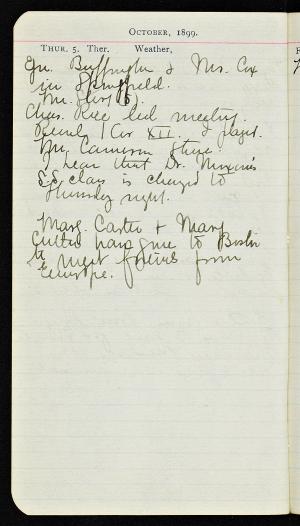 OCTOBER, 1899.
THUR. 5. Ther. Weather,
Buffington & Mrs. Cox
in Springfield.
Mr.
Chas. Rice led meeting.
Read 1 Cor XII. &
Mr. Cameron
I hear that Dr.
S.S. class is changed to
Thursday night.
Marg. Carter & Mary
Cutler have gone to Boston
to meet from
Europe.